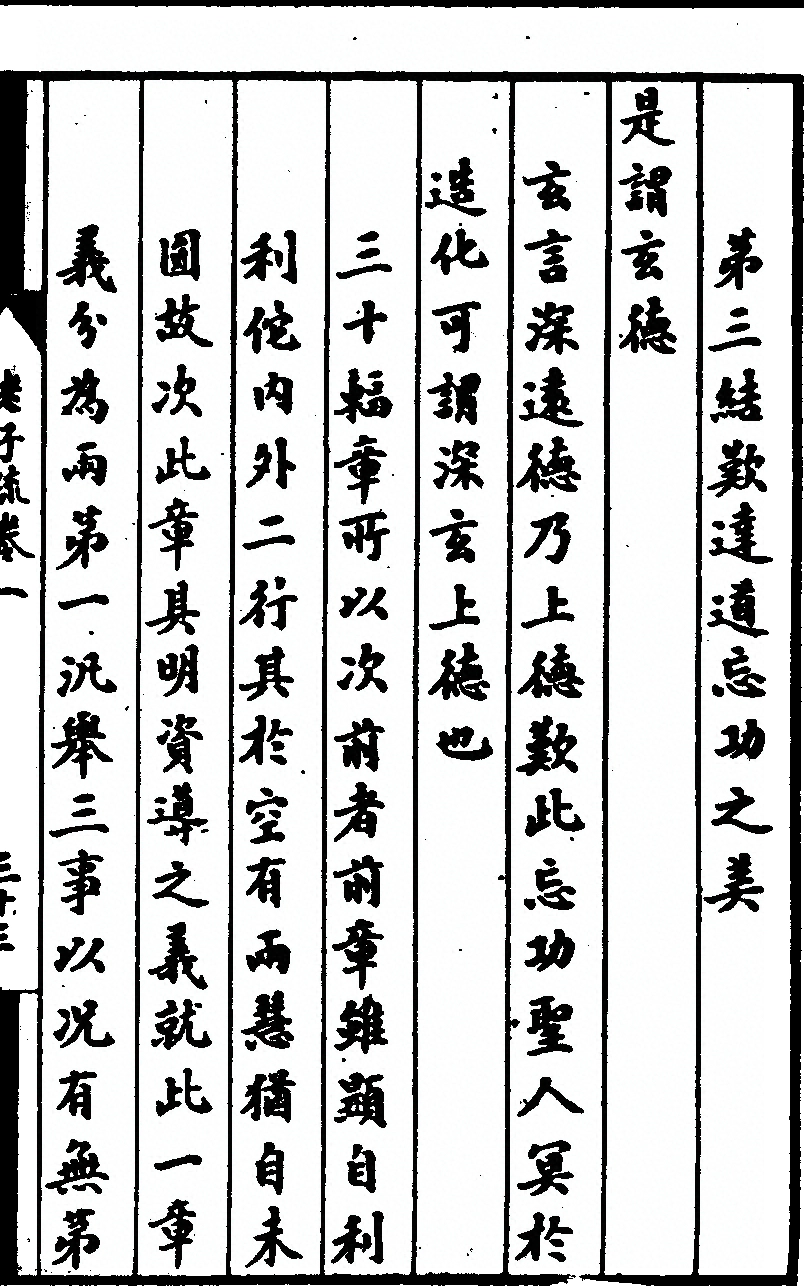 第三結歎達道忘功之美
是謂玄德
玄言深遠德乃上德歎此忘功聖人冥於
造化可謂深玄上德也
三十輻章所以次前者前章雖顯自利
利佗內外二行其於空有兩慧猶自未
圓故次此章具明資導之義就此一章
義分為兩第一汎舉三事以况有無第
老子疏卷一
三十三